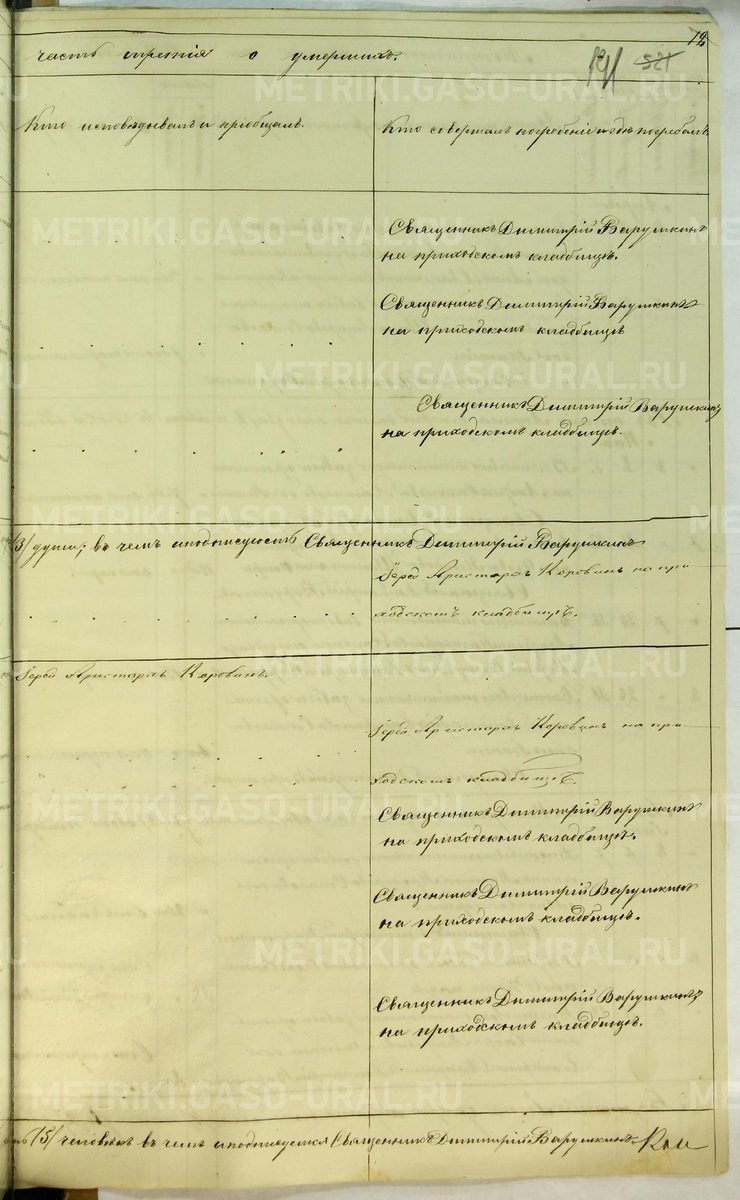 часть третія о умершихъ.
12
191 521
Кто исповѣдывалъ и пріобщалъ.
Кто совершалъ погребеніе и гдѣ погребали
Священникъ Димитрій Варушкинъ
на приходскомъ кладбищѣ.
Священникъ Димитрій Варушкинъ
на приходскомъ кладбищѣ
Священникъ Димитрій Варушкинъ
на приходскомъ кладбищѣ.
/3/ души; въ чемъ и подписуюсь Священникъ Димитрій Варушкинъ
Іерей Аристархъ Коровинъ на при
ходскомъ кладбищѣ.
Іерей Аристархъ Коровинъ.
Іерей Аристархъ Коровинъ на при
ходскомъ кладбищѣ.
Священникъ Димитрій Варушкинъ
на приходскомъ кладбищѣ.
Священникъ Димитрій Варушкинъ
на приходскомъ кладбищѣ.
Священникъ Димитрій Варушкинъ
на приходскомъ кладбищѣ.
/5/ человѣкъ въ чемъ и подписуемся Священникъ Димитрій Варушкинъ
METRIKI.GASO-URAL.RU